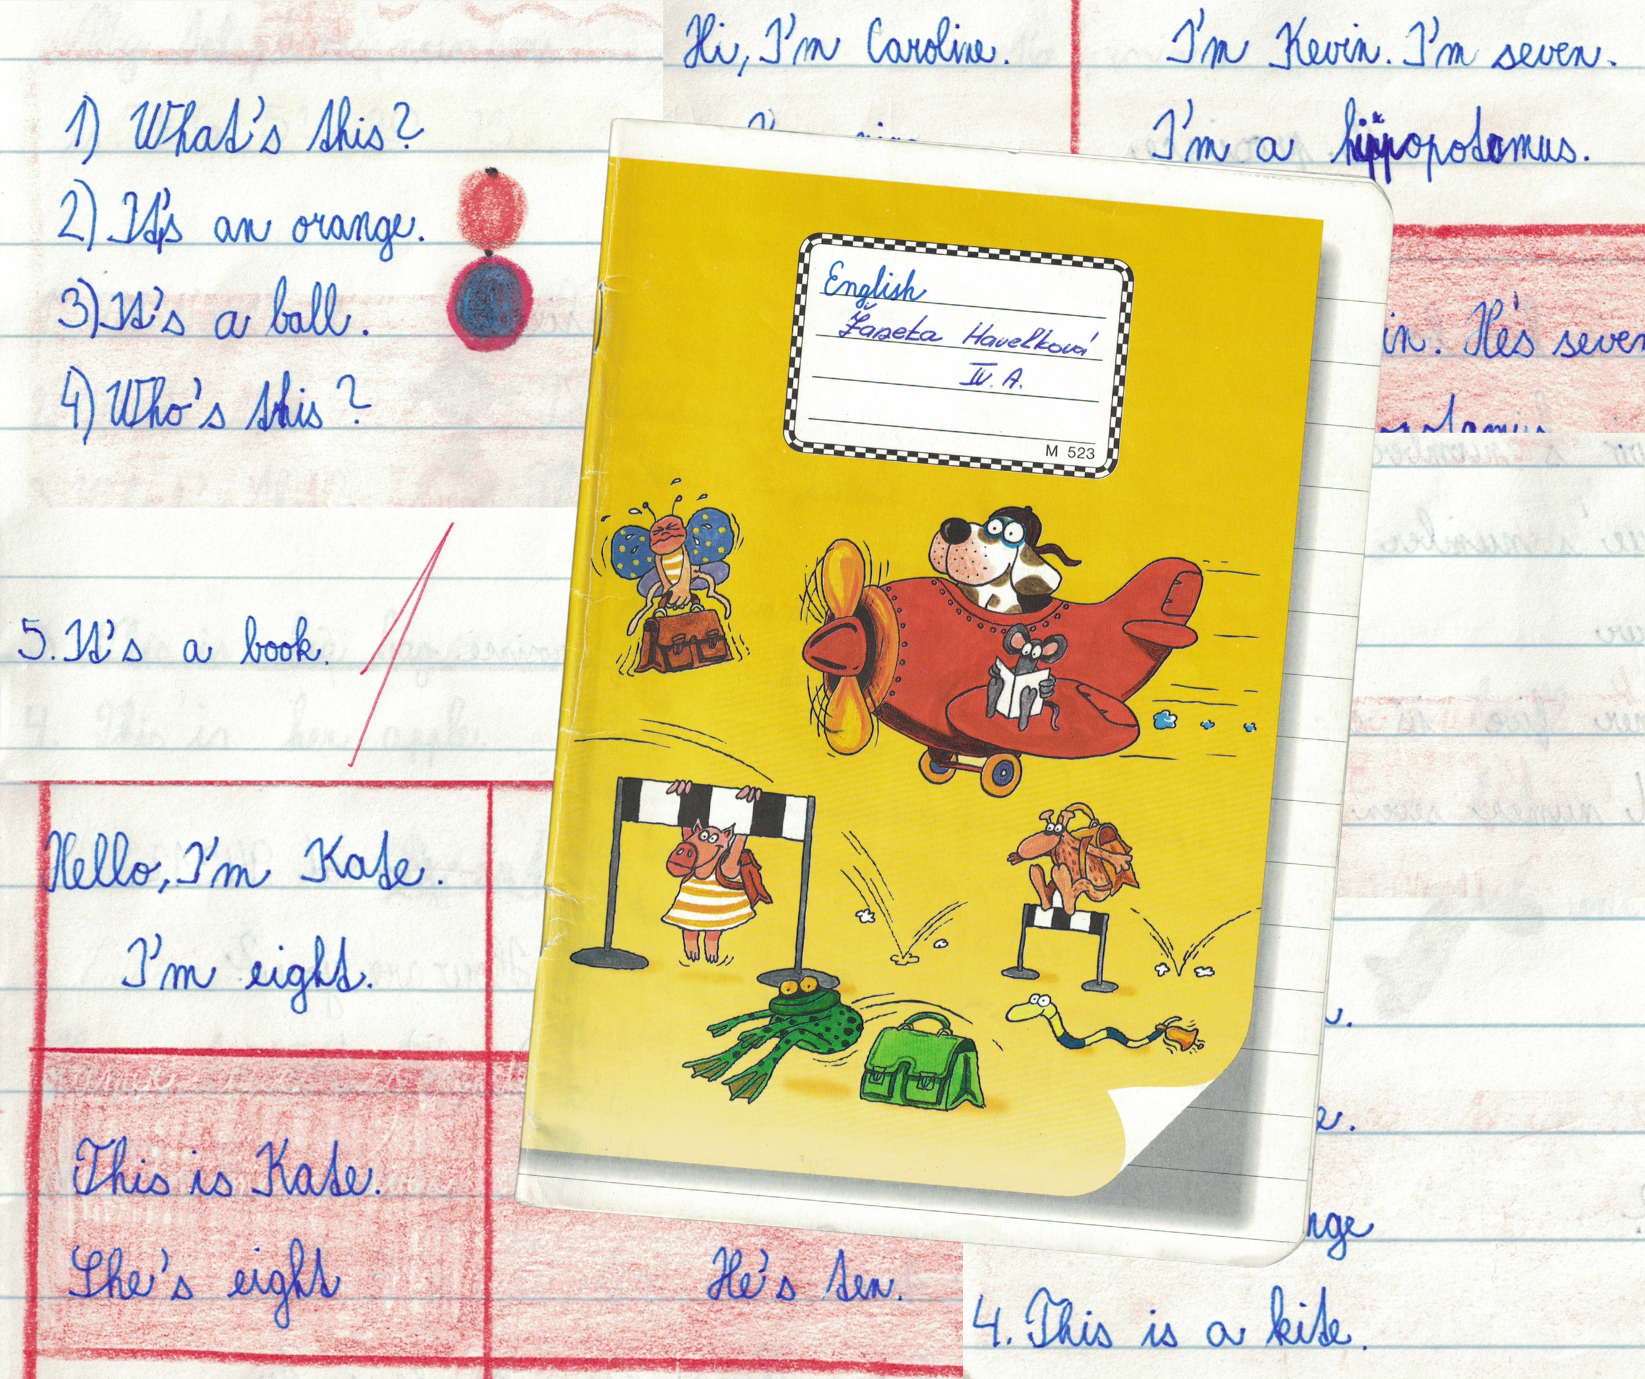 1) What's this?
2) It's an orange.
3) It's a ball.
4) Who's this?
Hi, I'm Caroline.
I'm Kevin. I'm seven.
I'm a hippopotamus.
in. He's seven
English
Žaneta Havelková
IV. A.
M 523
5. It's a book.
Hello, I'm Kate.
I'm eight.
This is Kate.
She's eight
He's ten.
nge
4. This is a kite.